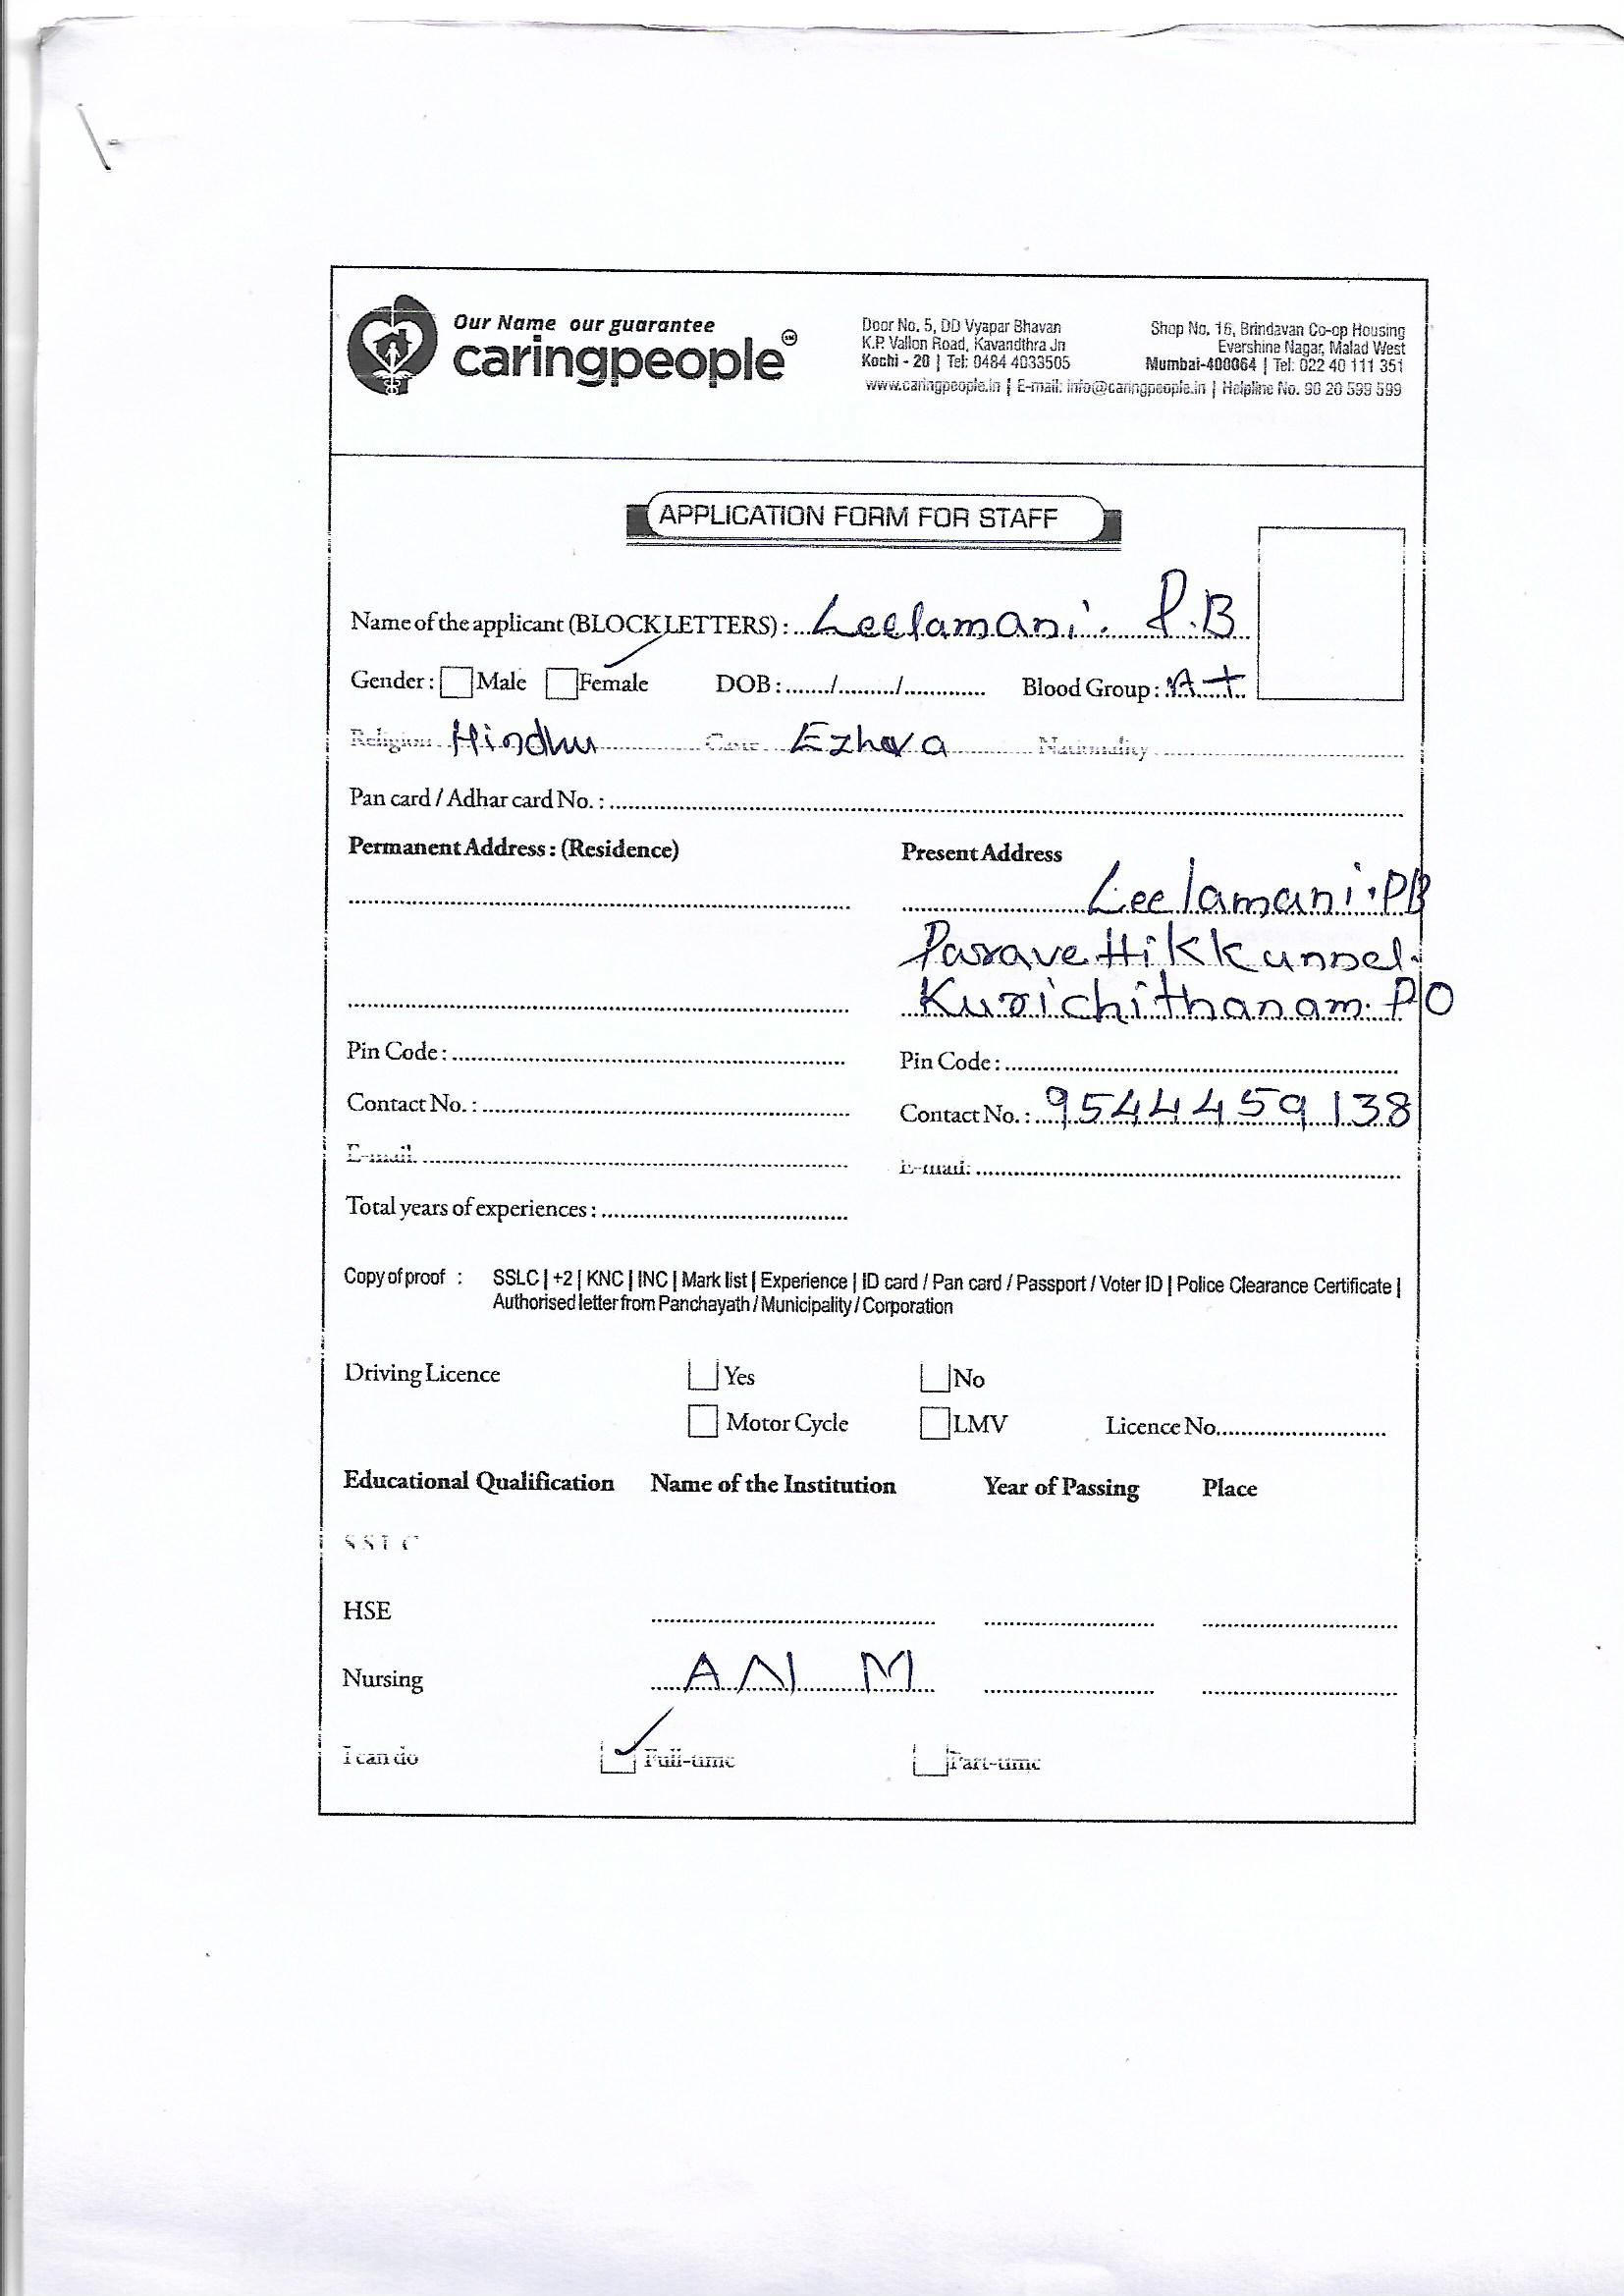 Our Name our guarantee
caringpeople SM
Door No. 5, DD Vyapar Bhavan
K.P. Vallon Road, Kavandthra Jn
Kochi - 20 | Tel: 0484 4033505
Shop No. 16, Brindavan Co-op Housing
Evershine Nagar, Malad West
Mumbai-400064 | Tel: 022 40 111 351
www.caringpeople.in | E-mail: info@caringpeople.in | Helpline No. 90 20 599 599
APPLICATION FORM FOR STAFF
Name of the applicant (BLOCK LETTERS) : Leelamani. P.B
Gender : Male Female DOB : ......./........./............. Blood Group : A+
Religion Hindhu Caste Ezhava Nationality
Pan card / Adhar card No. :
Permanent Address : (Residence) Present Address
Leelamani.PB
Paravettikkunnel.
Kurichithanam. PO
Pin Code : Pin Code :
Contact No. : Contact No. : 9544459138
E-mail: E-mail:
Total years of experiences :
Copy of proof : SSLC | +2 | KNC | INC | Mark list | Experience | ID card / Pan card / Passport / Voter ID | Police Clearance Certificate |
Authorised letter from Panchayath / Municipality / Corporation
Driving Licence Yes No
Motor Cycle LMV Licence No.
Educational Qualification Name of the Institution Year of Passing Place
SSLC
HSE
Nursing ANM
I can do Full-time Part-time